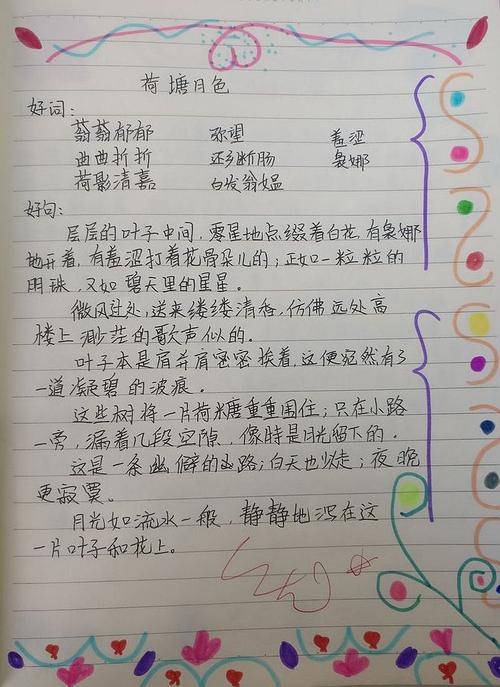 荷塘月色
好词:
蓊蓊郁郁 弥望 羞涩
曲曲折折 还乡断肠 袅娜
荷影清嘉 白发翁媪
好句:
层层的叶子中间,零星地点缀着白花,有袅娜
地开着,有羞涩打着花骨朵儿的;正如一粒粒的
明珠,又如碧天里的星星。
微风过处,送来缕缕清香,仿佛远处高
楼上渺茫的歌声似的。
叶子本是肩并肩密密挨着,这便宛然有了
一道凝碧的波痕。
这些树将一片荷塘重重围住;只在小路
一旁,漏着几段空隙,像特是月光留下的.
这是一条幽僻的路;白天也少走;夜晚
更寂寞。
月光如流水一般,静静地泻在这
一片叶子和花上。